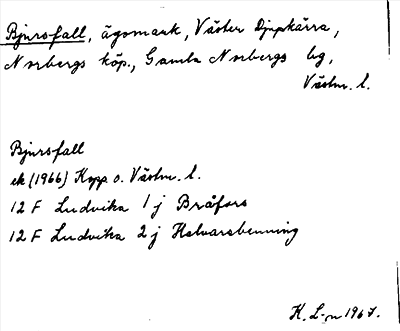 Bjursfall, ägomark, Väster Djupkärra,
Norbergs köp., Gamla Norbergs bg,
Västm. l.
Bjursfall
ek (1966) Kopp o. Västm. l.
12 F Ludvika 1 j Bråfors
12 F Ludvika 2 j Halvarsbenning
K. L-n 1967.